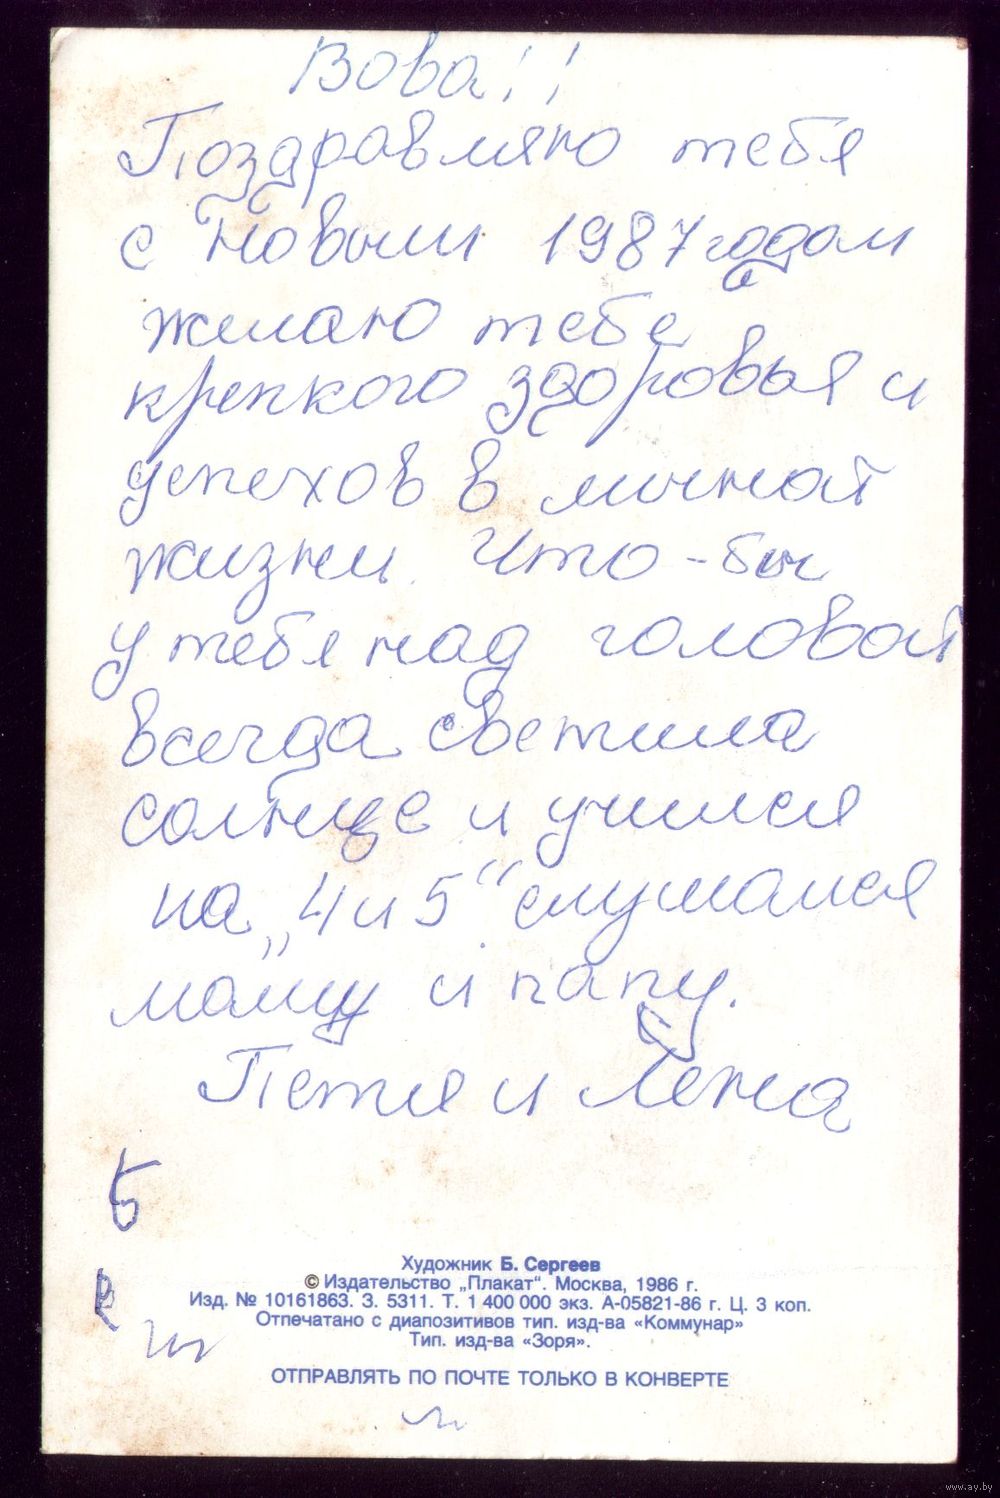 Вова!!
Поздравляю тебя
с Новым 1987 годом
желаю тебе
крепкого здоровья и
успехов в личной
жизни. Что-бы
у тебя над головой
всегда светила
солнце и учился
на „4 и 5“ слушался
маму и папу.
Петя и Лена
Б
Художник Б. Сергеев
© Издательство „Плакат“. Москва, 1986 г.
Изд. № 10161863. З. 5311. Т. 1 400 000 экз. А-05821-86 г. Ц. 3 коп.
Отпечатано с диапозитивов тип. изд-ва «Коммунар»
Тип. изд-ва «Зоря».
ОТПРАВЛЯТЬ ПО ПОЧТЕ ТОЛЬКО В КОНВЕРТЕ
www.ay.by